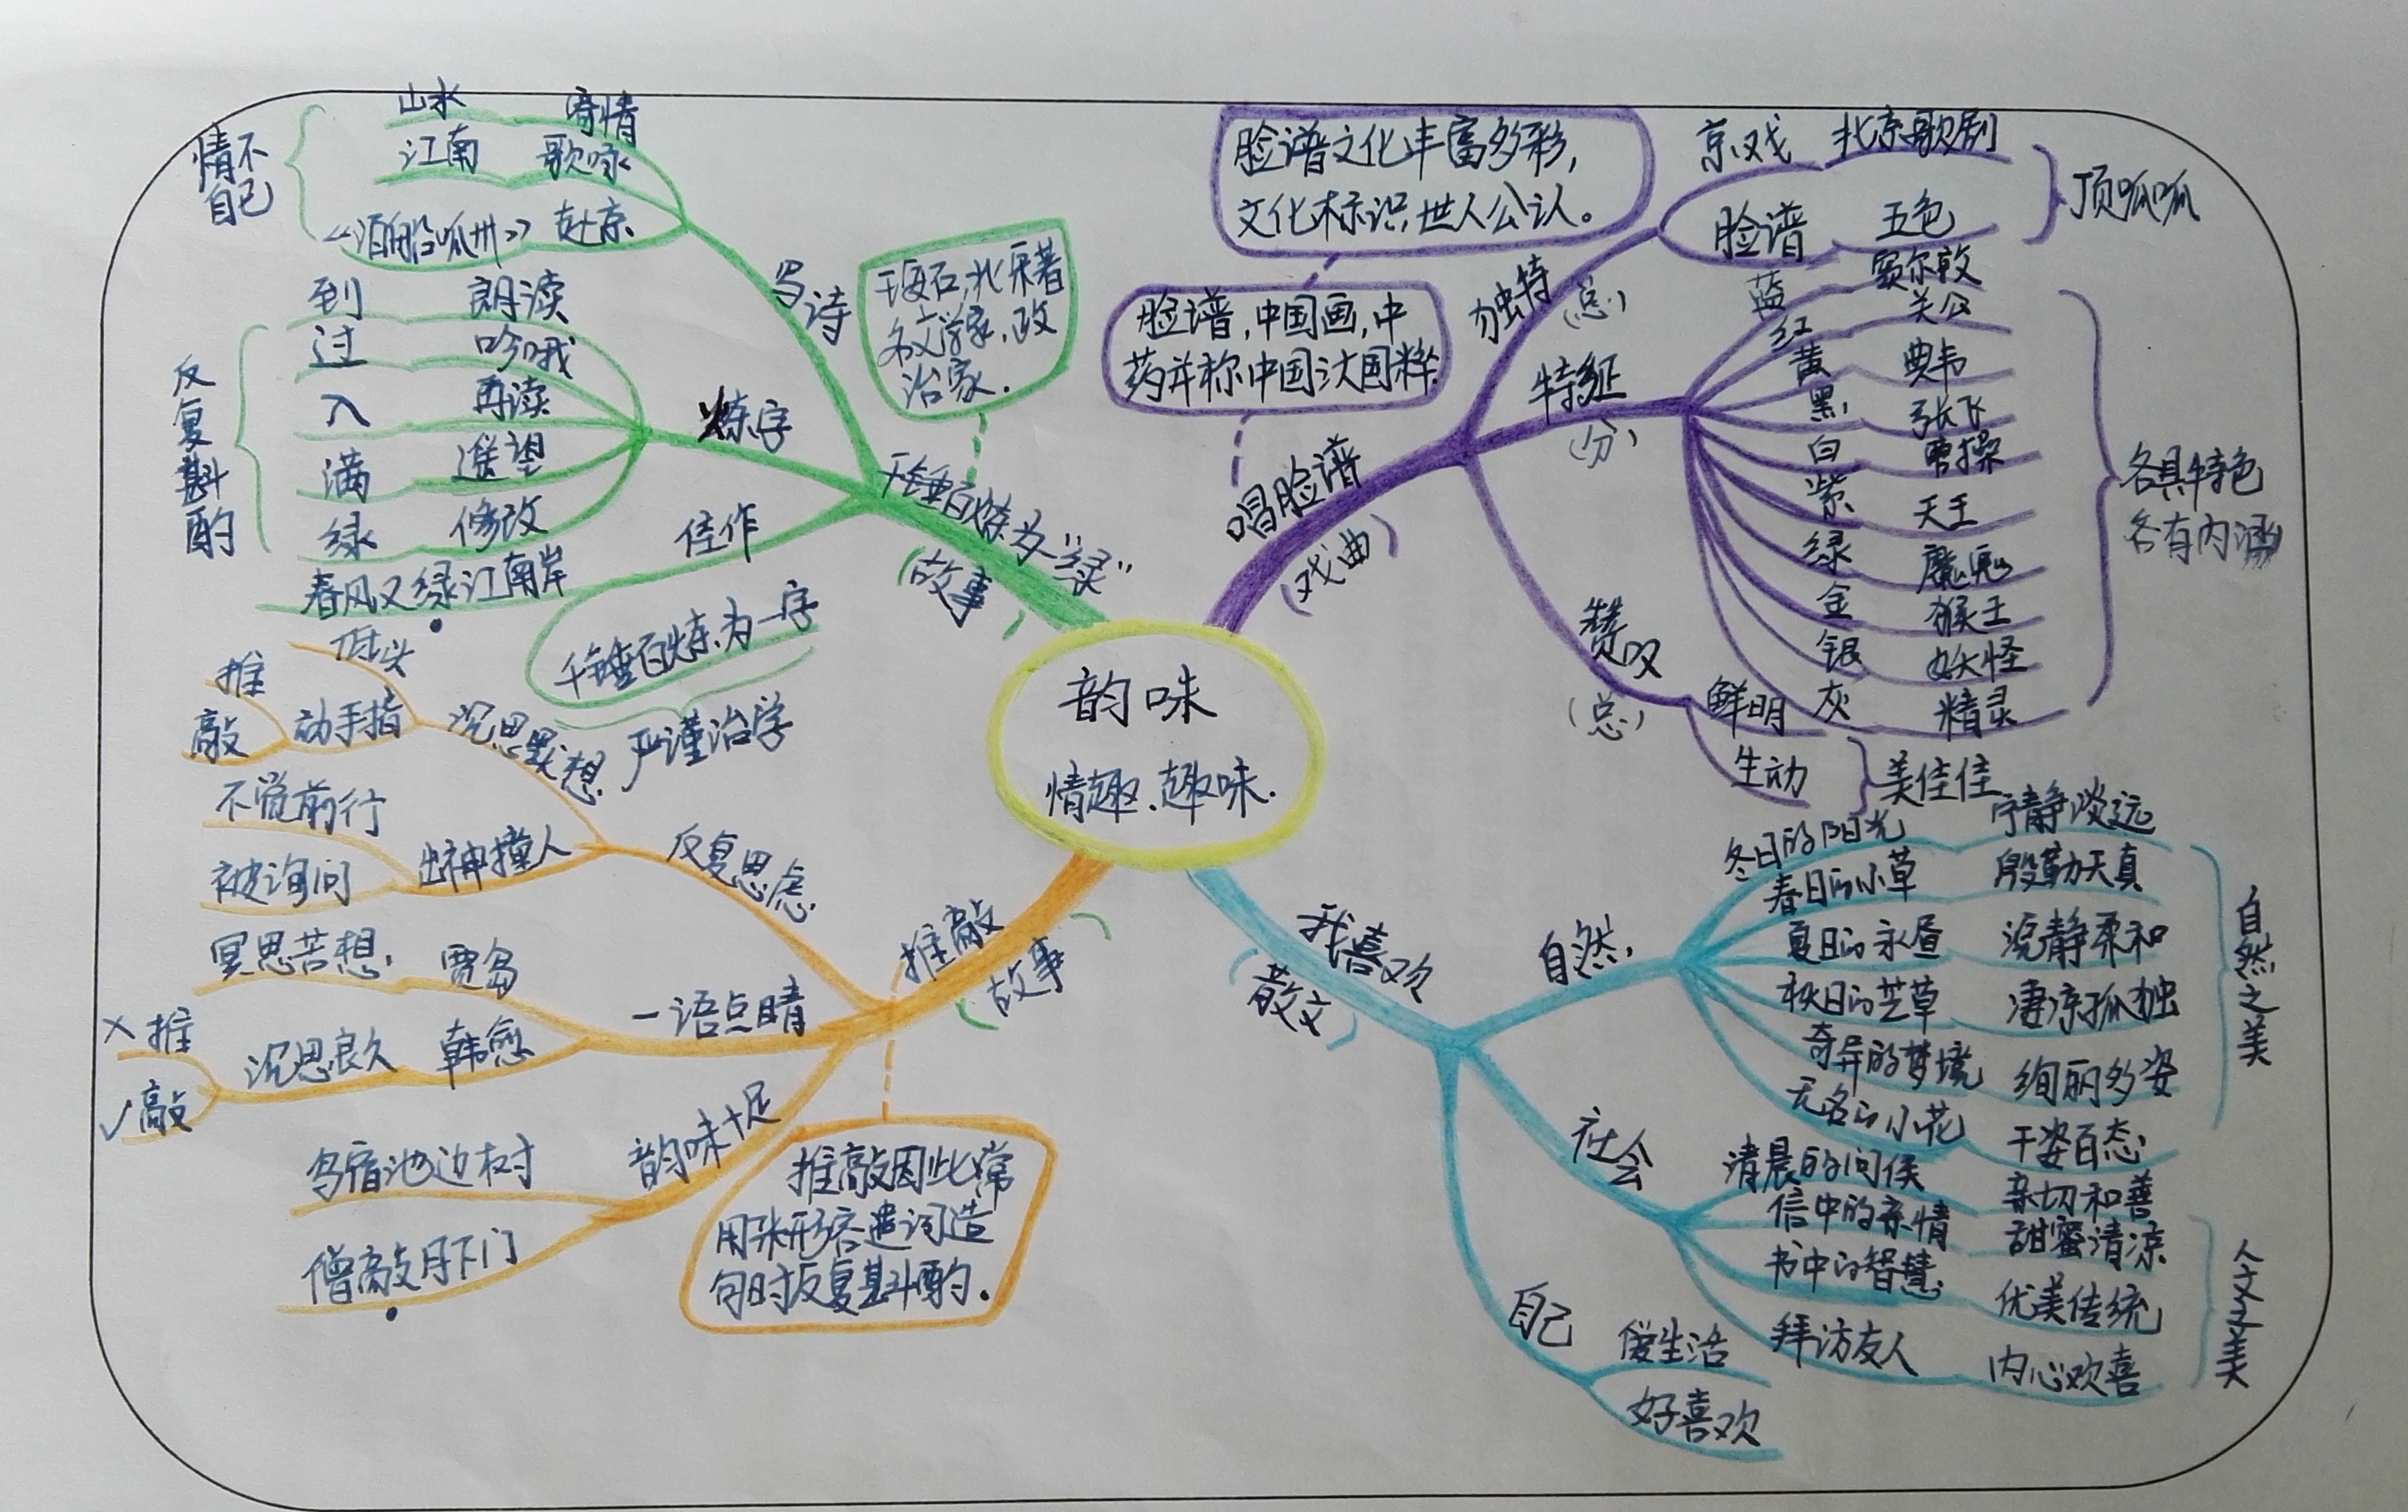 韵味
情趣、趣味.
唱脸谱
(戏曲)
脸谱文化丰富多彩,
文化标识,世人公认。
脸谱,中国画,中
药并称中国三大国粹.
独特
(总)
京戏 北京歌剧
脸谱 五色
顶呱呱
特征
(分)
蓝 窦尔敦
红 关公
黄 典韦
黑 张飞
白 曹操
紫 天王
绿 魔鬼
金 猴王
银 妖怪
灰 精灵
各具特色
各有内涵
赞叹
(总)
鲜明
生动
美佳佳
我喜欢
(散文)
自然
冬日的阳光 宁静淡远
春日的小草 殷勤天真
夏日的永昼 沉静柔和
秋日的芒草 凄凉孤独
奇异的梦境 绚丽多姿
无名的小花 千姿百态
自然之美
社会
清晨的问侯 亲切和善
信中的亲情 甜蜜清凉
书中的智慧 优美传统
拜访友人 内心欢喜
人文之美
自己
爱生活
好喜欢
推敲
(故事)
推敲因此常
用来形容遣词造
句时反复斟酌.
反复思虑
沉思默想
低头
动手指
推
敲
出神撞人
不觉前行
被询问
一语点睛
贾岛
冥思苦想
韩愈
沉思良久
×推
✓敲
韵味十足
鸟宿池边树
僧敲月下门
千锤百炼为"绿"
(故事)
王安石,北宋著
名文学家,政
治家.
写诗
山水 寄情
江南 歌咏
《泊船瓜州》 赴京
情不
自己
炼字
到 朗读
过 吟哦
入 再读
满 遥望
绿 修改
反复斟酌
佳作
春风又绿江南岸
千锤百炼为一字
严谨治学